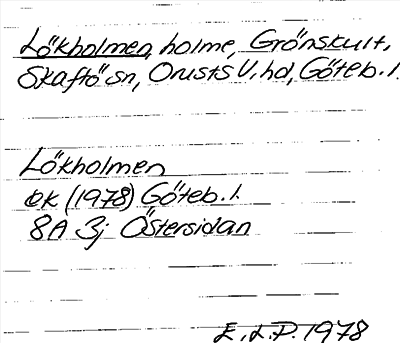 Lökholmen, holme, Grönskult,
Skaftö sn, Orusts V. hd, Göteb. l.
Lökholmen
ek (1978) Göteb. l.
8A 3j Östersidan
E.L.P. 1978